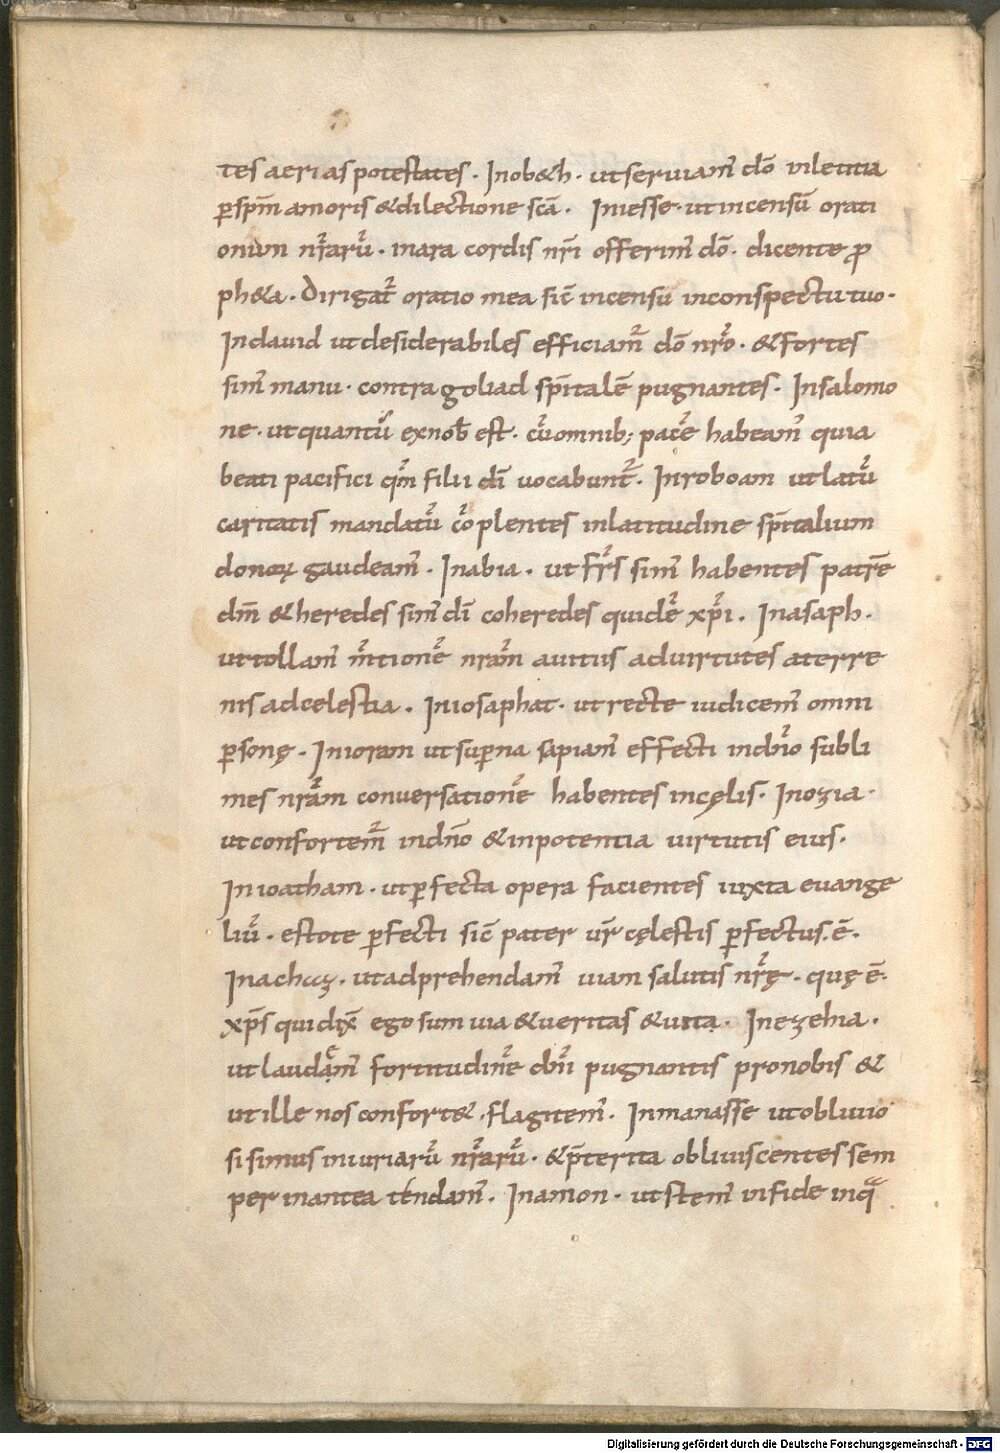 tes aerias potestates. In ob&h. ut seruiam̅ dō in letitia
ꝑ spm̅ amoris & dilectione scā. In iesse. ut incensū orati
onum nr̅arū. in ara cordis nr̅i offerim̅ dō. dicente ꝓ
ph&a. Dirigat̅ oratio mea sic̅ incensu in conspectu tuo.
In dauid ut desiderabiles efficiam̅ dō nr̅o. & fortes
sim̅ manu. contra goliad sp̅italē pugnantes. In salomo
ne. ut quantū ex nob̅ est. cū omnib; pacē habeam̅ quia
beati pacifici qm̅ filii dī uocabunt̅. In roboam ut latū
caritatis mandatū cōplentes in latitudine sp̅italium
donoꝝ gaudeam̅. In abia. ut fr̅s sim̅ habentes patrē
dm̅ & heredes sim̅ dī coheredes quidē xp̅i. In asaph.
ut tollam̅ m̅tionē nr̅am a uitiis ad uirtutes a terre
nis ad celestia. In iosaphat. ut recte iudicem̅ omni
ꝑsonę. In ioram ut suꝑna sapiam̅ effecti in dn̅o subli
mes nr̅am conuersationē habentes in cęlis. In ozia.
ut confortem̅ in dn̅o & in potentia uirtutis eius.
In ioatham. ut ꝑfecta opera facientes iuxta euange
liū. estote ꝑfecti sic̅ pater ur̅ cęlestis ꝑfectus. ē.
In achaz. ut adprehendam̅ uiam salutis nr̅ę. quę ē.
xp̅s qui dix̅ ego sum uia & ueritas & uita. In ezehia.
ut laudam̅ fortitudinē dn̅i pugnantis pro nobis &
ut ille nos confort&. flagitem̅. In manasse ut obliuio
si simus iniuriarū nr̅arū. & p̅terita obliuiscentes sem
per in antea tendam̅. In amon. ut stem̅ in fide in q
Digitalisierung gefördert durch die Deutsche Forschungsgemeinschaft - DFG